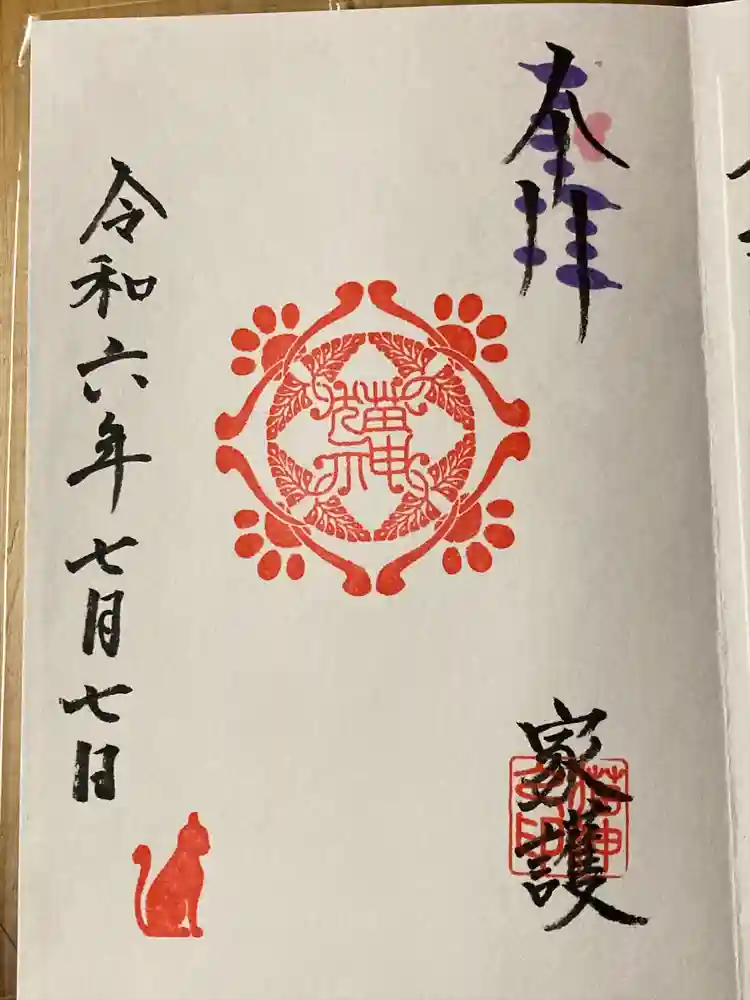 奉拝
猫神
家護
令和六年七月七日